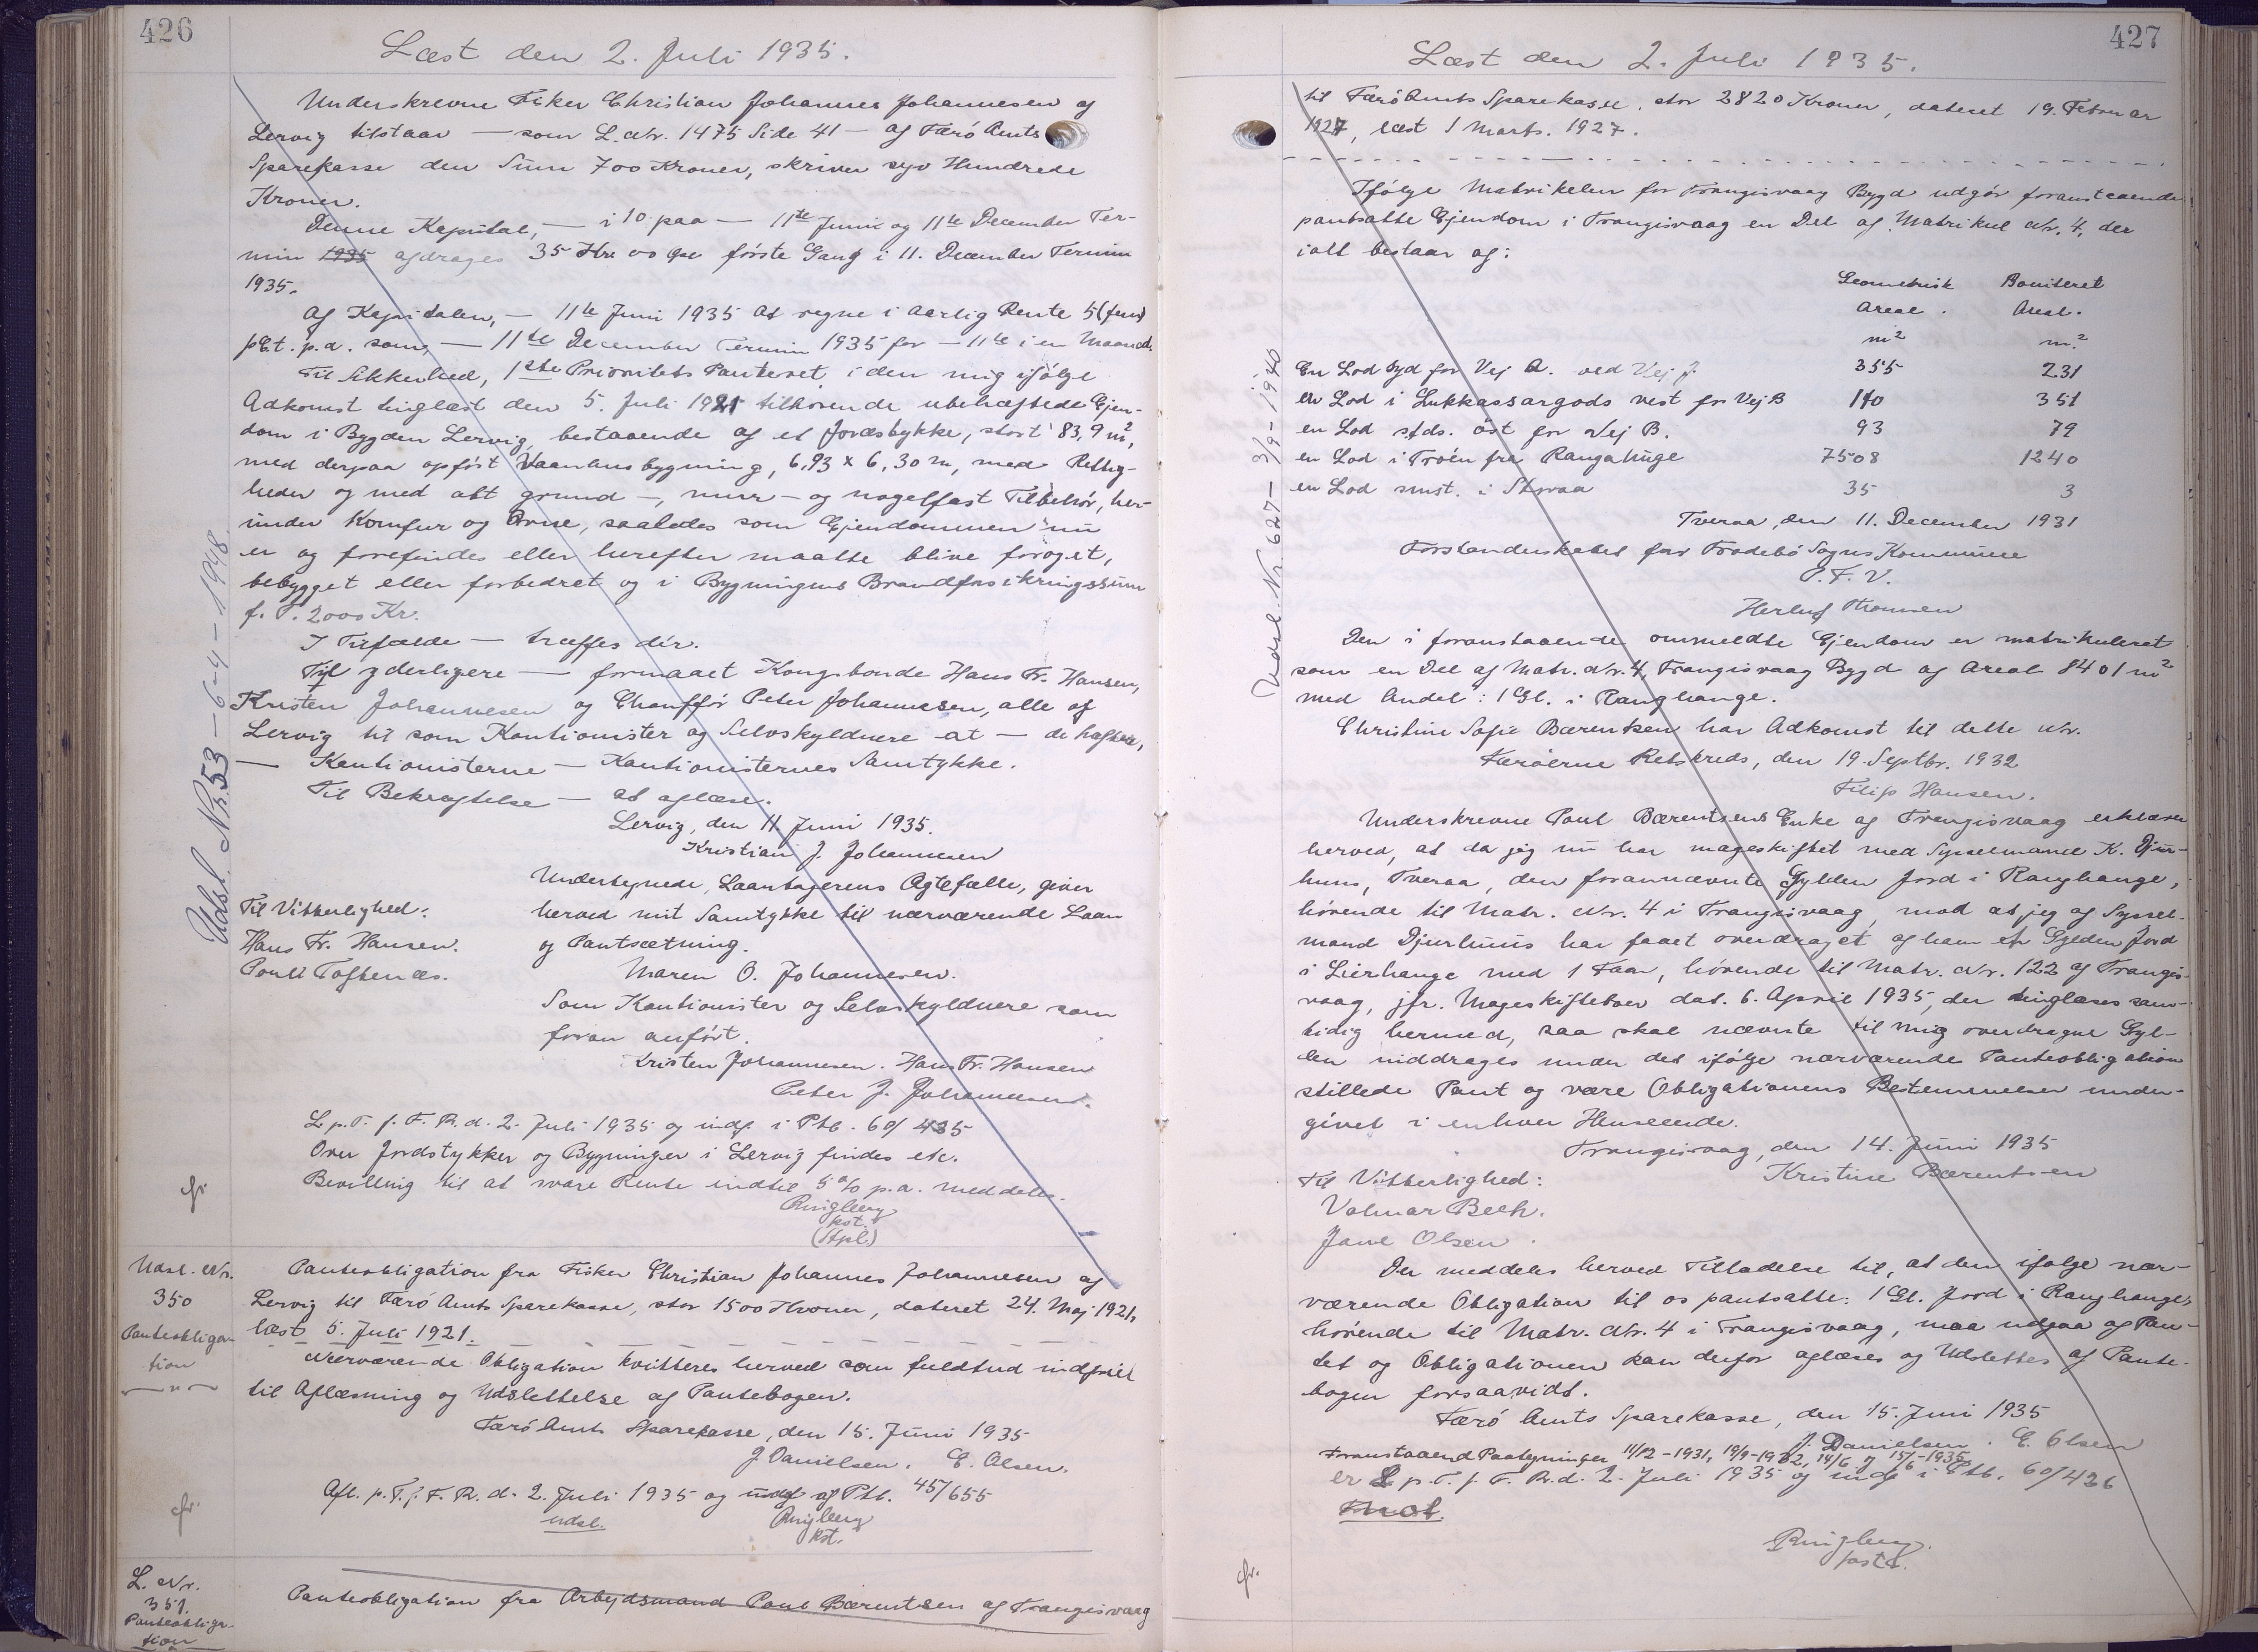 426
Læst den 2. Juli 1935.
Underskrevne Fisker Christian Johannes Johannesen af
Lervig tilstaar — som L. Nr. 1475 Side 41 — af Færö Amts
Sparekasse den Sum 700 Kroner, skriver syv Hundrede
Kroner.
Denne Kapital, — i 10 paa — 11te Juni og 11te December Ter-
min 1935 afdrages 35 Kr. 00 Øre förste Gang i 11. December Termin
1935.
Af Kapitalen, — 11te Juni 1935 at regne i aarlig Rente 5 (fem)
pCt. p.a. som, — 11te December Termin 1935 for — 11te i en Maaned.
Til Sikkerhed, 1ste Prioritets Panteret i den mig ifölge
Adkomst tinglæst den 5. Juli 1921 tilhörende ubehæftede Ejen-
dom i Bygden Lervig, bestaaende af et Jordstykke, stort 83,9 m²,
med derpaa opfört Vaaanhusbygning, 6,93 x 6,30 m, med Rettig-
heder og med alt grund —, mur — og nagelfast Tilbehör, her-
under Komfur og Ovne, saaledes som Ejendommen nu
er og forefindes eller herefter maatte blive foröget,
bebygget eller forbedret og i Bygningens Brandforsikringssum
f. T. 2000 Kr.
I Tilfælde — træffes dér.
Til yderligere — formaaet Kongsbonde Hans Fr. Hansen,
Kristen Johannesen og Chaufför Peter Johannesen, alle af
Lervig til som Kautionister og Selvskyldnere at — de hæfter,
— Kautionisterne — Kautionisternes Samtykke.
Til Bekræftelse — at aflæse.
Lervig, den 11. Juni 1935.
Kristian J. Johannesen
Undertegnede, Laantagerens Ægtefælle, giver
Til Vitterlighed: herved mit Samtykke til nærværende Laan
Hans Fr. Hansen. og Pantsætning.
Poull Toftenæs. Maren O. Johannesen.
Som Kautionister og Selvskyldnere som
foran anfört.
Kristen Johannesen. Hans Fr. Hansen
Peter J. Johannesen.
L. p. T. f. F. R. d. 2. Juli 1935 og indf. i Ptb. 60/435
Over Jordstykker og Bygninger i Lervig findes etc.
Bevilling til at svare Rente indtil 5 % p.a. meddeles.
Ringberg
kst.
(Stpl.)
cfr.
Udsl. Nr. 53 — 6-4-1948.
Udsl. Nr.
350
Panteobliga-
tion
Panteobligation fra Fisker Christian Johannes Johannesen af
Lervig til Færö Amts Sparekasse, stor 1500 Kroner, dateret 24. Maj 1921,
læst 5. Juli 1921.
Nærværende Obligation kvitteres herved som fuldtud indfriet
til Aflæsning og Udslettelse af Pantebogen.
Færö Amts Sparekasse, den 15. Juni 1935
J. Danielsen. E. Olsen.
Afl. p. T. f. F. R. d. 2. Juli 1935 og indf af Ptb. 45/655
udsl. Ringberg
kst.
cfr.
L. Nr.
351.
Panteobliga-
tion
Panteobligation fra Arbejdsmand Poul Bærentsen af Trangisvaag
427
Læst den 2. Juli 1935.
til Færö Amts Sparekasse, stor 2820 Kroner, dateret 19. Februar
1927, læst 1 Marts. 1927.
Ifölge Matrikelen for Trangisvaag Bygd udgör foranstaaende
pantsatte Ejendom i Trangisvaag en Del af Matrikul Nr. 4, der
ialt bestaar af:
Geometrisk Boniteret
Areal. Areal.
m² m²
En Lod Syd for Vej A. ved Vej J. 355 231
en Lod i Lukkassargods vest for Vej B 110 351
en Lod stds. öst for Vej B. 93 79
en Lod i Tröen fra Rangahuge 7508 1240
en Lod smst. i Straa 35 3
Tveraa, den 11. December 1931
Forstanderskabet for Frodebö Sogns Kommune
P. F. V.
Herluf Thomsen
Den i foranstaaende ommeldte Ejendom er matrikuleret
som en Del af Matr. Nr. 4, Trangisvaag Bygd af Areal 8401 m²
med Andel: 1 Gl. i Ranghange.
Christine Sofie Bærentsen har Adkomst til dette Nr.
Færöerne Retskreds, den 19. Septbr. 1932
Filip Hansen.
Underskrevne Poul Bærentsens Enke af Trangisvaag erklærer
herved, at da jeg nu har mageskiftet med Sysselmand K. Djur-
huus, Tveraa, den forannævnte Gylden Jord i Ranghange,
hörende til Matr. Nr. 4 i Trangisvaag, mod at jeg af Syssel-
mand Djurhuus har faaet overdraget af ham en Gylden Jord
i Lierhange med 1 Faar, hörende til Matr. Nr. 122 af Trangis-
vaag, jfr. Mageskiftebrev dat. 6. April 1935, der tinglæses sam-
tidig hermed, saa skal nævnte til mig overdragne Gyl-
den inddrages under det ifölge nærværende Panteobligation
stillede Pant og være Obligationens Bestemmelser under-
givet i enhver Henseende.
Trangisvaag, den 14. Juni 1935
Til Vitterlighed: Kristine Bærentsen
Valmar Bech.
Jane Olsen.
Der meddeles herved Tilladelse til, at den ifölge nær-
værende Obligation til os pantsatte: 1 Gl. Jord i Ranghange,
hörende til Matr. Nr. 4 i Trangisvaag, maa udgaa af Pan-
tet og Obligationen kan derfor aflæses og Udslettes af Pante-
bogen forsaavidt.
Færö Amts Sparekasse, den 15. Juni 1935
J. Danielsen. E. Olsen
Foranstaaend Paategninger 11/12-1931, 19/9-1932, 14/6 og 15/6-1935
er L p. T. f. F. R. d. 2. Juli 1935 og indf i Ptb. 60/426
Ringberg.
kst.
cfr.
Udsl. Nr. 627 — 3/9-1940